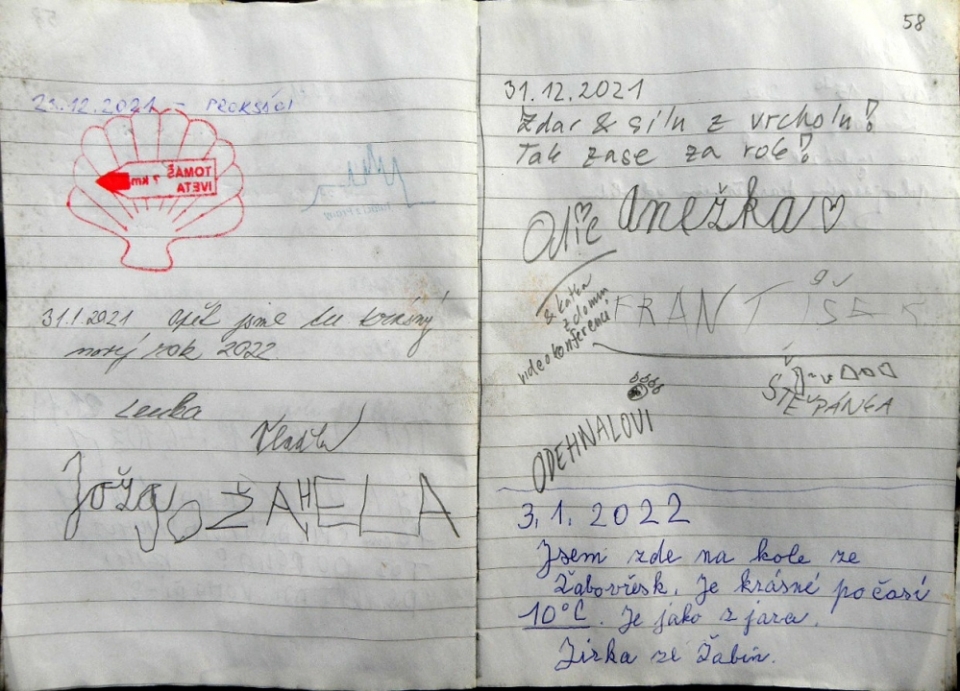 29.12.2021 -
TOMAŠ
IVETA
7 km
31.1.2021 Opět jsme tu krásný
nový rok 2022
Lenka
Vladla
Joža
ŽAHELA
58
31.12.2021
Zdar & sílu z vrcholu!
Tak zase za rok!
Olič Anežka
& Katka
z domu
videokonferencí
FRANTIŠEK
ŠTĚPÁNKA
ODEHNALOVI
3.1.2022
Jsem zde na kole ze
Žabovřesk. Je krásné počasí
10°C. Je jako z jara.
Jirka ze Žabin.